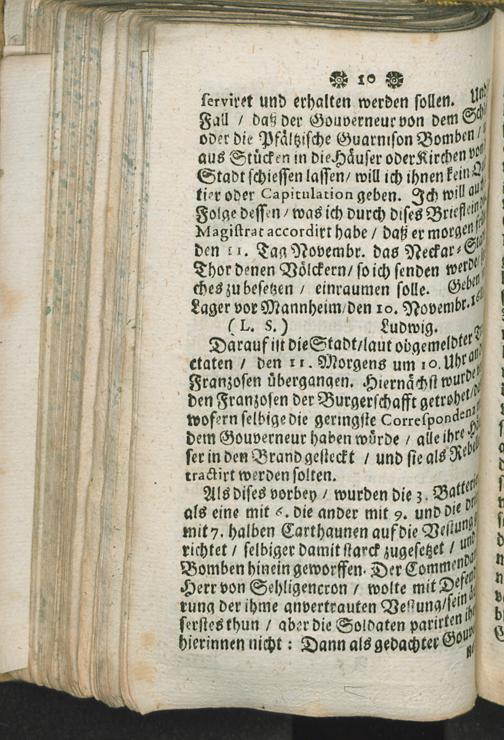 10
serviret und erhalten werden sollen. Und
Fall / daß der Gouverneur von dem
oder die Pfältzische Guarnison Bomben /
aus Stücken in die Häuser oder Kirchen von
Stadt schiessen lassen / will ich ihnen kein
tier oder Capitulation geben. Ich will
Folge dessen / was ich durch dises Brieflein
Magistrat accordirt habe / daß er morgen
den 11. Tag Novembr. das Neckar-
Thor denen Völckern / so ich senden werde
ches zu besetzen / einraumen solle. Geben
Lager vor Mannheim / den 10. Novembr.
(L. S.) Ludwig.
Darauf ist die Stadt / laut obgemeldter
ctaten / den 11. Morgens um 10. Uhr an
Franzosen übergangen. Hiernächst wurde
den Franzosen der Burgerschafft getrohet /
wofern selbige die geringste Correspondenz
dem Gouverneur haben würde / alle ihre
ser in den Brand gesteckt / und sie als
tractirt werden solten.
Als dises vorbey / wurden die 3.
als eine mit 6. die ander mit 9. und die
mit 7. halben Carthaunen auf die Vestung
richtet / selbiger damit starck zugesetzet / und
Bomben hinein geworffen. Der
Herr von Sehligencron / wolte mit
rung der ihme anvertrauten Vestung / sein
serstes thun / aber die Soldaten parirten
hierinnen nicht : Dann als gedachter